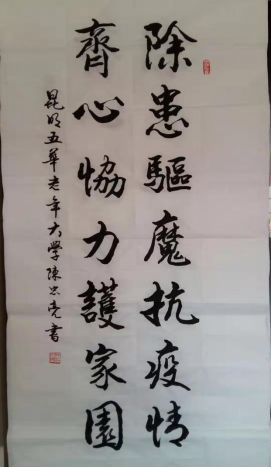 除患驅魔抗疫情
齊心協力護家園
昆明五華老年大學陳忠亮書